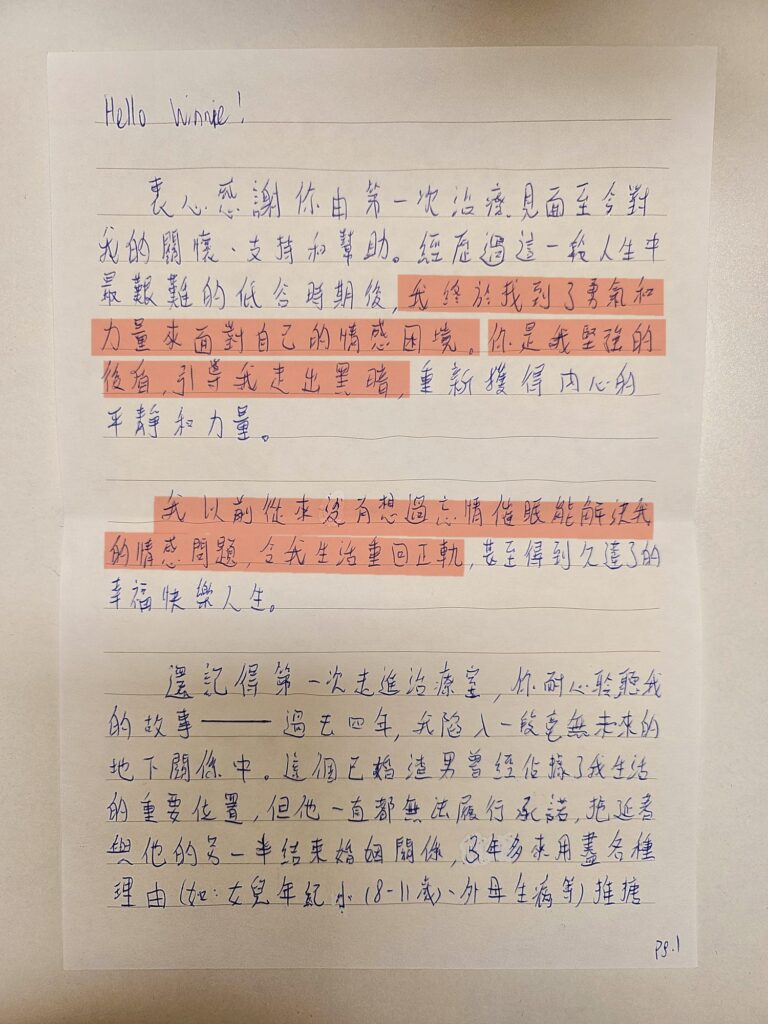 Hello Winnie!
衷心感謝你由第一次治療見面至今對
我的關懷、支持和幫助。經歷過這一輪人生中
最艱難的低谷時期後,我終於找到了勇氣和
力量來面對自己的情感困境。你是我堅強的
後盾,引導我走出黑暗,重新獲得內心的
平靜和力量。
我以前從來沒有想過忘情催眠能解決我
的情感問題,令我生活重回正軌,甚至得到久違了的
幸福快樂人生。
還記得第一次走進治療室,你耐心聆聽我
的故事——過去四年,我陷入一段毫無未來的
地下關係中。這個已婚渣男曾經佔據了我生活
的重要位置,但他一直都無法履行承諾,拖延着
與他的另一半結束婚姻關係,3年多來用盡各種
理由(如:女兒年紀小(8-11歲)、外母生病等)推搪
pg.1